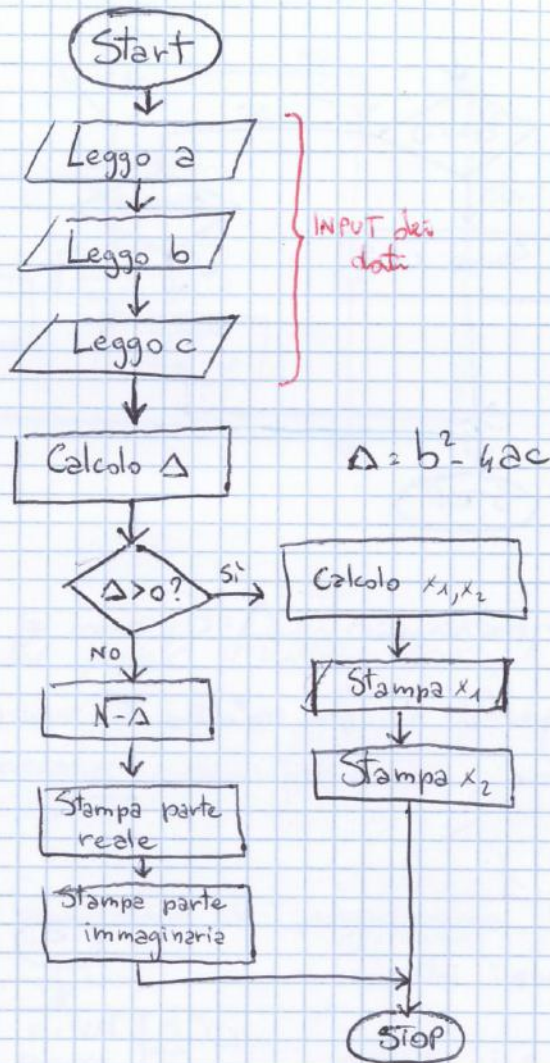 Start
Leggo a
Leggo b
Leggo c
INPUT dei
dati
Calcolo Δ
Δ = b² - 4ac
Δ>0?
Sì
NO
Calcolo x₁,x₂
Stampa x₁
Stampa x₂
√-Δ
Stampa parte
reale
Stampa parte
immaginaria
STOP